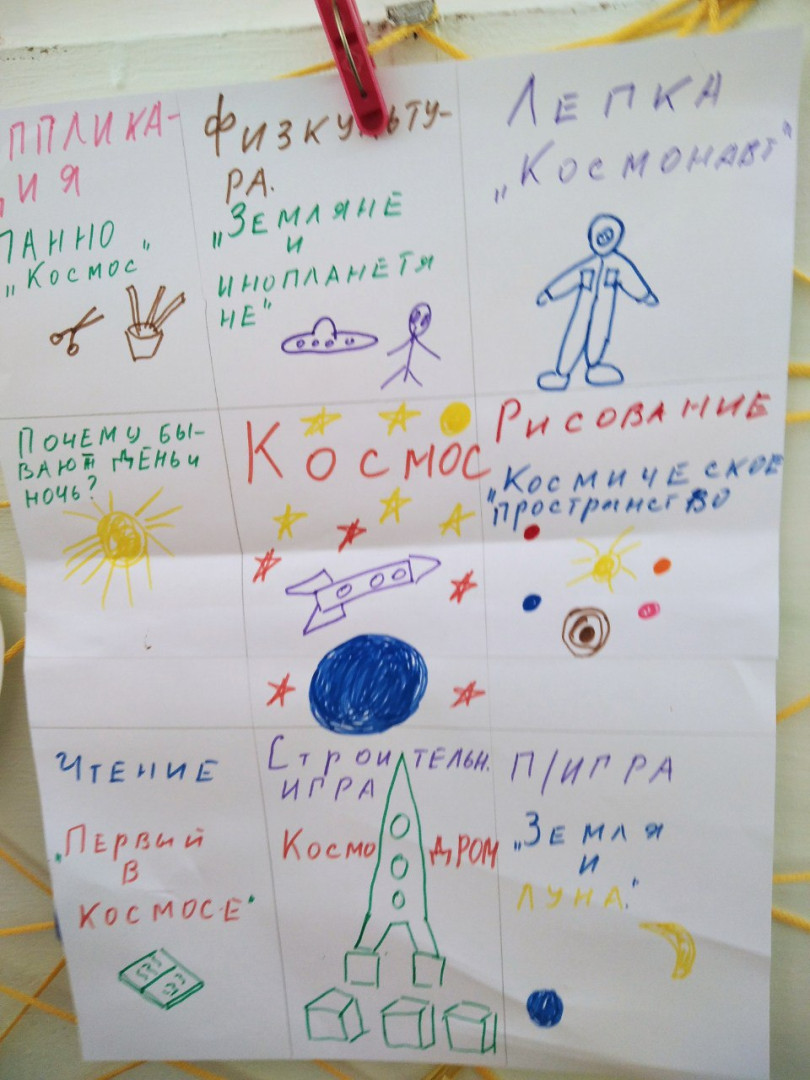 ППЛИКА-
ЦИЯ
ПАННО
„Космос"
ФИЗКУЛЬТУ-
РА.
„ЗЕМЛЯНЕ
И
ИНОПЛАНЕТЯ
НЕ"
ЛЕПКА
„КОСМОНАВТ"
ПОЧЕМУ БЫ-
ВАЮТ ДЕНЬ И
НОЧЬ?
КОСМОС
РИСОВАНИЕ
„КОСМИЧЕСКОЕ
ПРОСТРАНСТВО
ЧТЕНИЕ
„Первый
В
КОСМОСЕ"
СТРОИТЕЛЬН.
ИГРА
КОСМОДРОМ
П/ИГРА
„ЗЕМЛЯ
И
ЛУНА."